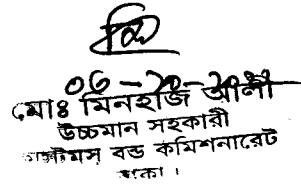 মোঃ মিনহাজ আলী
উচ্চমান সহকারী
কাস্টমস্ বন্ড কমিশনারেট
ঢাকা।